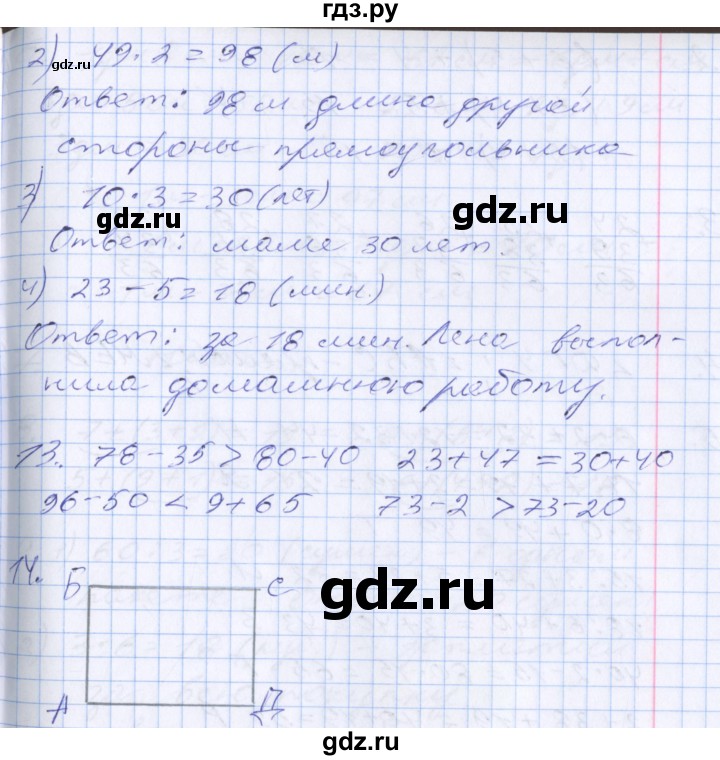 гдз.ру
gdz.ru
2) 49·2=98(м)
Ответ: 98 м длина другой
стороны прямоугольника
3) 10·3=30(лет)
gdz.ru
gdz.ru
Ответ: маме 30 лет.
4) 23-5=18 (мин.)
Ответ: за 18 мин. Лена выпол-
нила домашнюю работу.
13. 78-35>80-40 23+47=30+40
96-50<9+65 73-2>73-20
14.
Б С
gdz.ru
А Д
gdz.ru